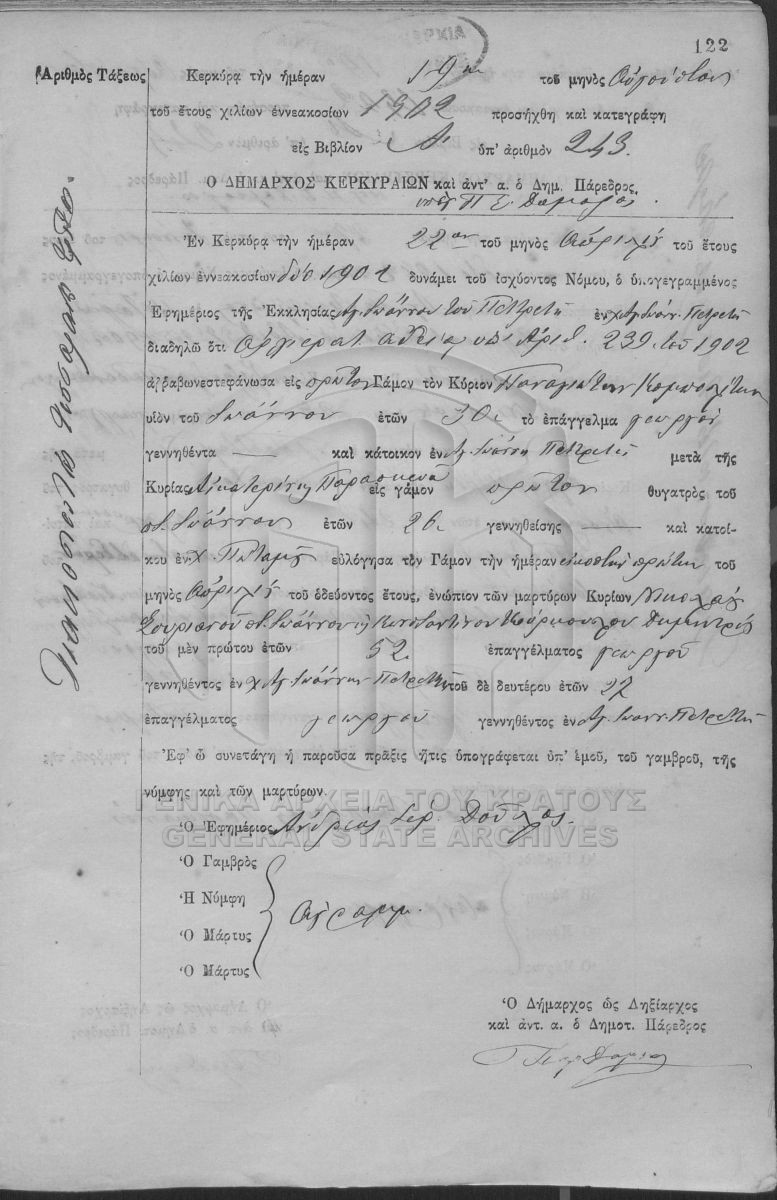 122
Ἀριθμὸς Τάξεως
Κερκύρᾳ τὴν ἡμέραν 19ην τοῦ μηνὸς Αὐγούστου
τοῦ ἔτους χιλίων ἐννεακοσίων 1902 προσήχθη καὶ κατεγράφη
εἰς Βιβλίον Α' ὑπ' ἀριθμὸν 243.
Ο ΔΗΜΑΡΧΟΣ ΚΕΡΚΥΡΑΙΩΝ καὶ ἀντ' α. ὁ Δημ. Πάρεδρος
Ἐν Κερκύρᾳ τὴν ἡμέραν 22αν τοῦ μηνὸς Ἀπριλίου τοῦ ἔτους
χιλίων ἐννεακοσίων δύο 1902 δυνάμει τοῦ ἰσχύοντος Νόμου, ὁ ὑπογεγραμμένος
Ἐφημέριος τῆς Ἐκκλησίας Αγ. Ιωάννου του Πετρετή ἐν χ Αγ. Ιωάν. Πετρετή
διαδηλῶ ὅτι ἀρχιερατ. αδεία υπ' Αριθ. 239 του 1902
ἀῤῥαβωνεστεφάνωσα εἰς πρῶτον Γάμον τὸν Κύριον Παναγιώτην
υἱὸν τοῦ Ιωάννου ἐτῶν 30 τὸ ἐπάγγελμα γεωργού
γεννηθέντα — καὶ κάτοικον ἐν Αγ. Ιωάννη Πετρετή μετὰ τῆς
Κυρίας Αἰκατερίνης Παρασκευά εἰς γάμον πρῶτον θυγατρὸς τοῦ
π. Ιωάννου ἐτῶν 26 γεννηθείσης — καὶ κατοί-
κου ἐν χ. Ποταμῷ εὐλόγησα τὸν Γάμον τὴν ἡμέραν εικοστήν πρώτην τοῦ
μηνὸς Ἀπριλίου τοῦ ὁδεύοντος ἔτους, ἐνώπιον τῶν μαρτύρων Κυρίων Νικολάου
Σουριανού π. Ιωάννου ἢ Κωνσταντίνου Δημητρίου
τοῦ μὲν πρώτου ἐτῶν 52 ἐπαγγέλματος γεωργού
γεννηθέντος ἐν χ Αγ. Ιωάννην Πετρετή τοῦ δὲ δευτέρου ἐτῶν 27
ἐπαγγέλματος γεωργού γεννηθέντος ἐν Αγ. Ιωαν. Πετρετή
Ἐφ' ᾧ συνετάγη ἡ παροῦσα πρᾶξις ἥτις ὑπογράφεται ὑπ' ἐμοῦ, τοῦ γαμβροῦ, τῆς
νύμφης καὶ τῶν μαρτύρων.
ΓΕΝΙΚΑ ΑΡΧΕΙΑ ΤΟΥ ΚΡΑΤΟΥΣ
GENERAL STATE ARCHIVES
Ὁ Ἐφημέριος Ανδρέας Ιερ.
Ὁ Γαμβρὸς
Ἡ Νύμφη
Ὁ Μάρτυς
Ὁ Μάρτυς
Αγραμμ.
Ὁ Δήμαρχος ὡς Ληξίαρχος
καὶ ἀντ. α. ὁ Δημοτ. Πάρεδρος